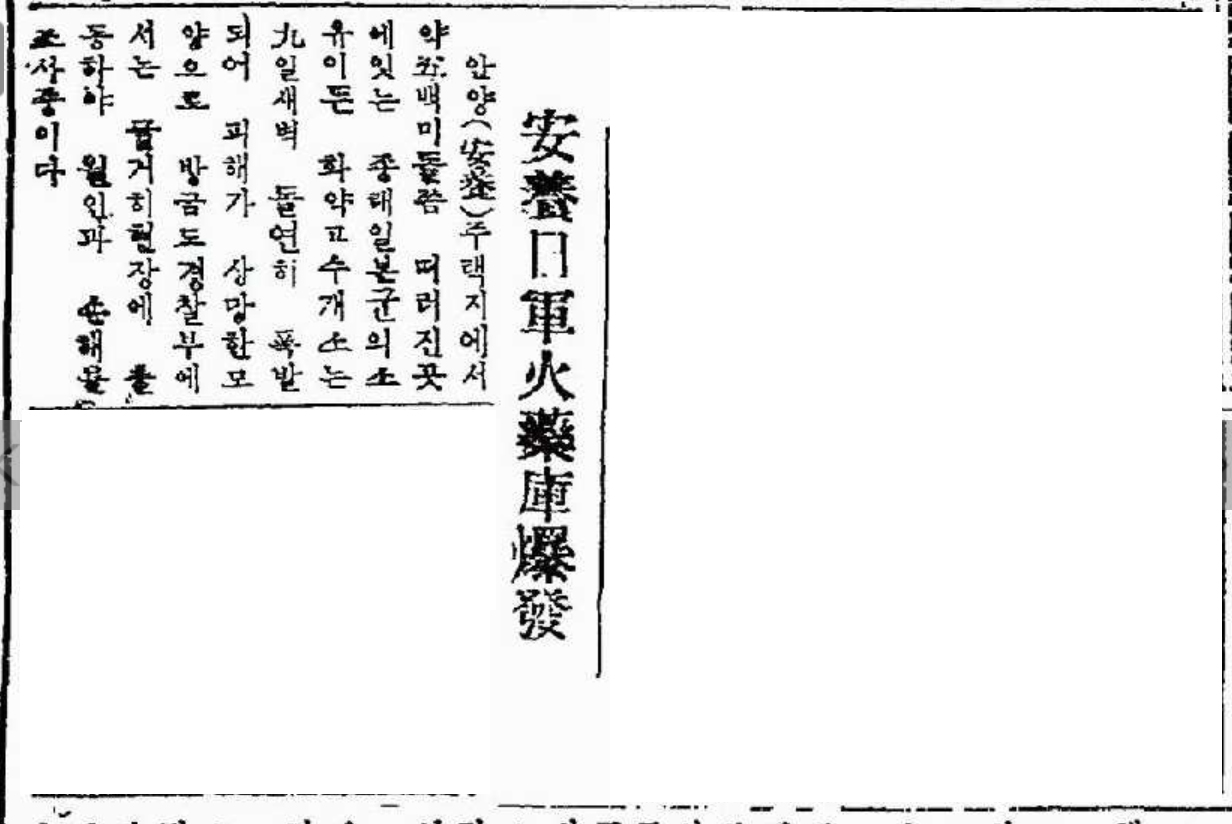 安養日軍火藥庫爆發
안양(安養)주택지에서
약五백미돌쯤 떠러진곳
에잇는 종래일본군의소
유이든 화약고수개소는
九일새벽 돌연히 폭발
되어 피해가 상망한모
양으로 방금도경찰부에
서는 급거히현장에 출
동하야 원인과 손해를
조사중이다